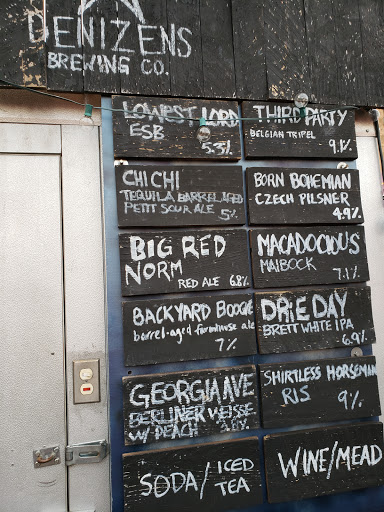 DENIZENS
BREWING CO.
LOWEST LORD
ESB
5.3%
THIRD PARTY
BELGIAN TRIPEL
9.1%
CHI CHI
TEQUILA BARREL AGED
PETIT SOUR ALE 5%
BORN BOHEMIAN
CZECH PILSNER
4.9%
BIG RED
NORM
RED ALE 6.8%
MACADOCIOUS
MAIBOCK 7.1%
BACKYARD BOOGIE
barrel-aged farmhouse ale
7%
DRIE DAY
BRETT WHITE IPA
6.9%
GEORGIA AVE
BERLINER WEISSE
W/ PEACH
SHIRTLESS HORSEMAN
RIS 9%
SODA/ICED
TEA
WINE/MEAD